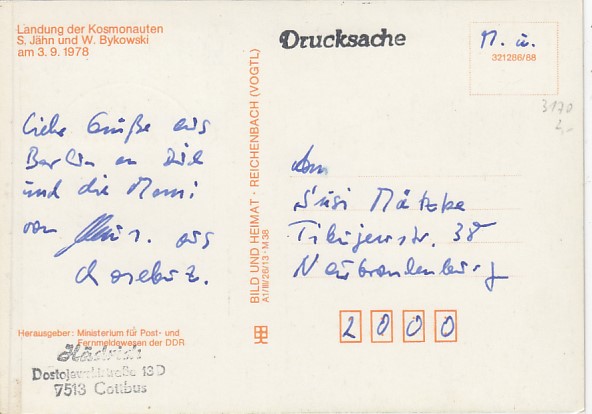 Landung der Kosmonauten
S. Jähn und W. Bykowski
am 3. 9. 1978
Drucksache
M. u.
321286/88
3170
2,-
Liebe Grüße aus
Berlin an Dich
und die Mami
von aus
BILD UND HEIMAT · REICHENBACH (VOGTL)
A1/III/26/13 · M 38
An
Susi Mätzke
Tilsjenstr. 38
Neubrandenburg
2000
Herausgeber: Ministerium für Post- und
Fernmeldewesen der DDR
Hädrich
Dostojewskistraße 13 D
7513 Cottbus